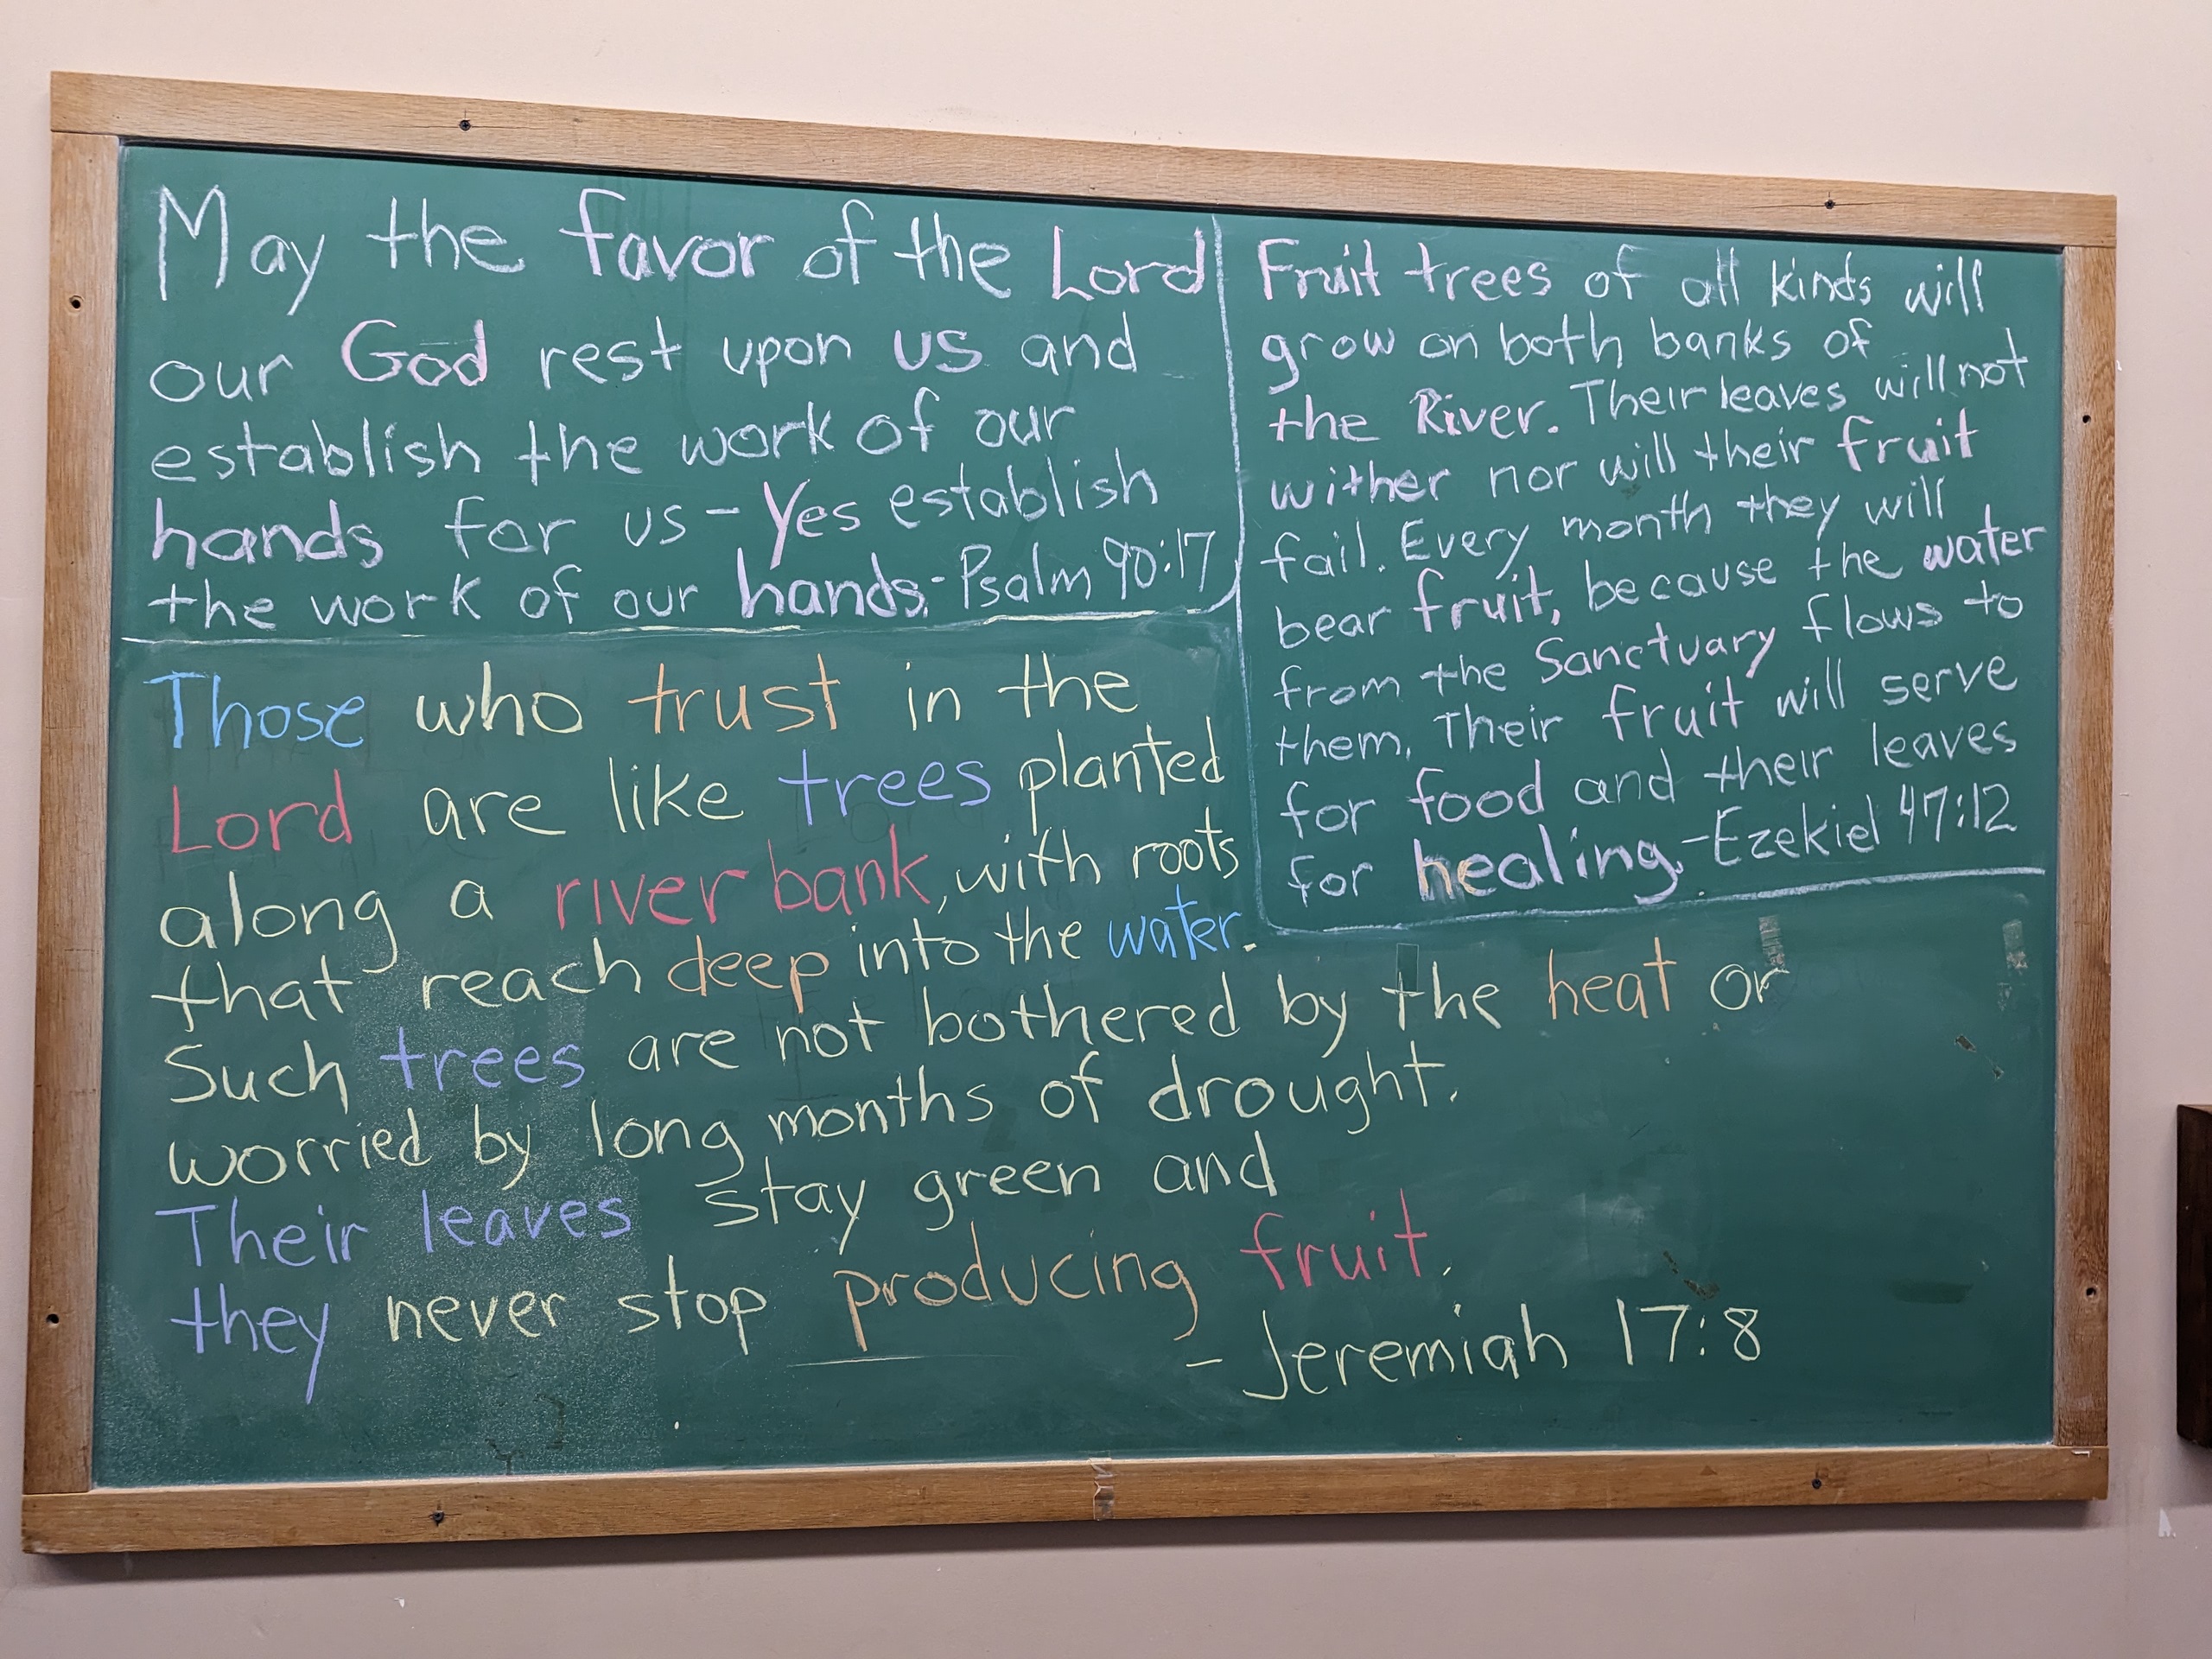 May the favor of the Lord
our God rest upon us and
establish the work of our
hands for us - Yes establish
the work of our hands. - Psalm 90:17
Fruit trees of all kinds will
grow on both banks of
the River. Their leaves will not
wither nor will their fruit
fail. Every month they will
bear fruit, because the water
from the Sanctuary flows to
them. Their fruit will serve
for food and their leaves
for healing. - Ezekiel 47:12
Those who trust in the
Lord are like trees planted
along a river bank, with roots
that reach deep into the water.
Such trees are not bothered by the heat or
worried by long months of drought.
Their leaves stay green and
they never stop producing fruit.
- Jeremiah 17:8